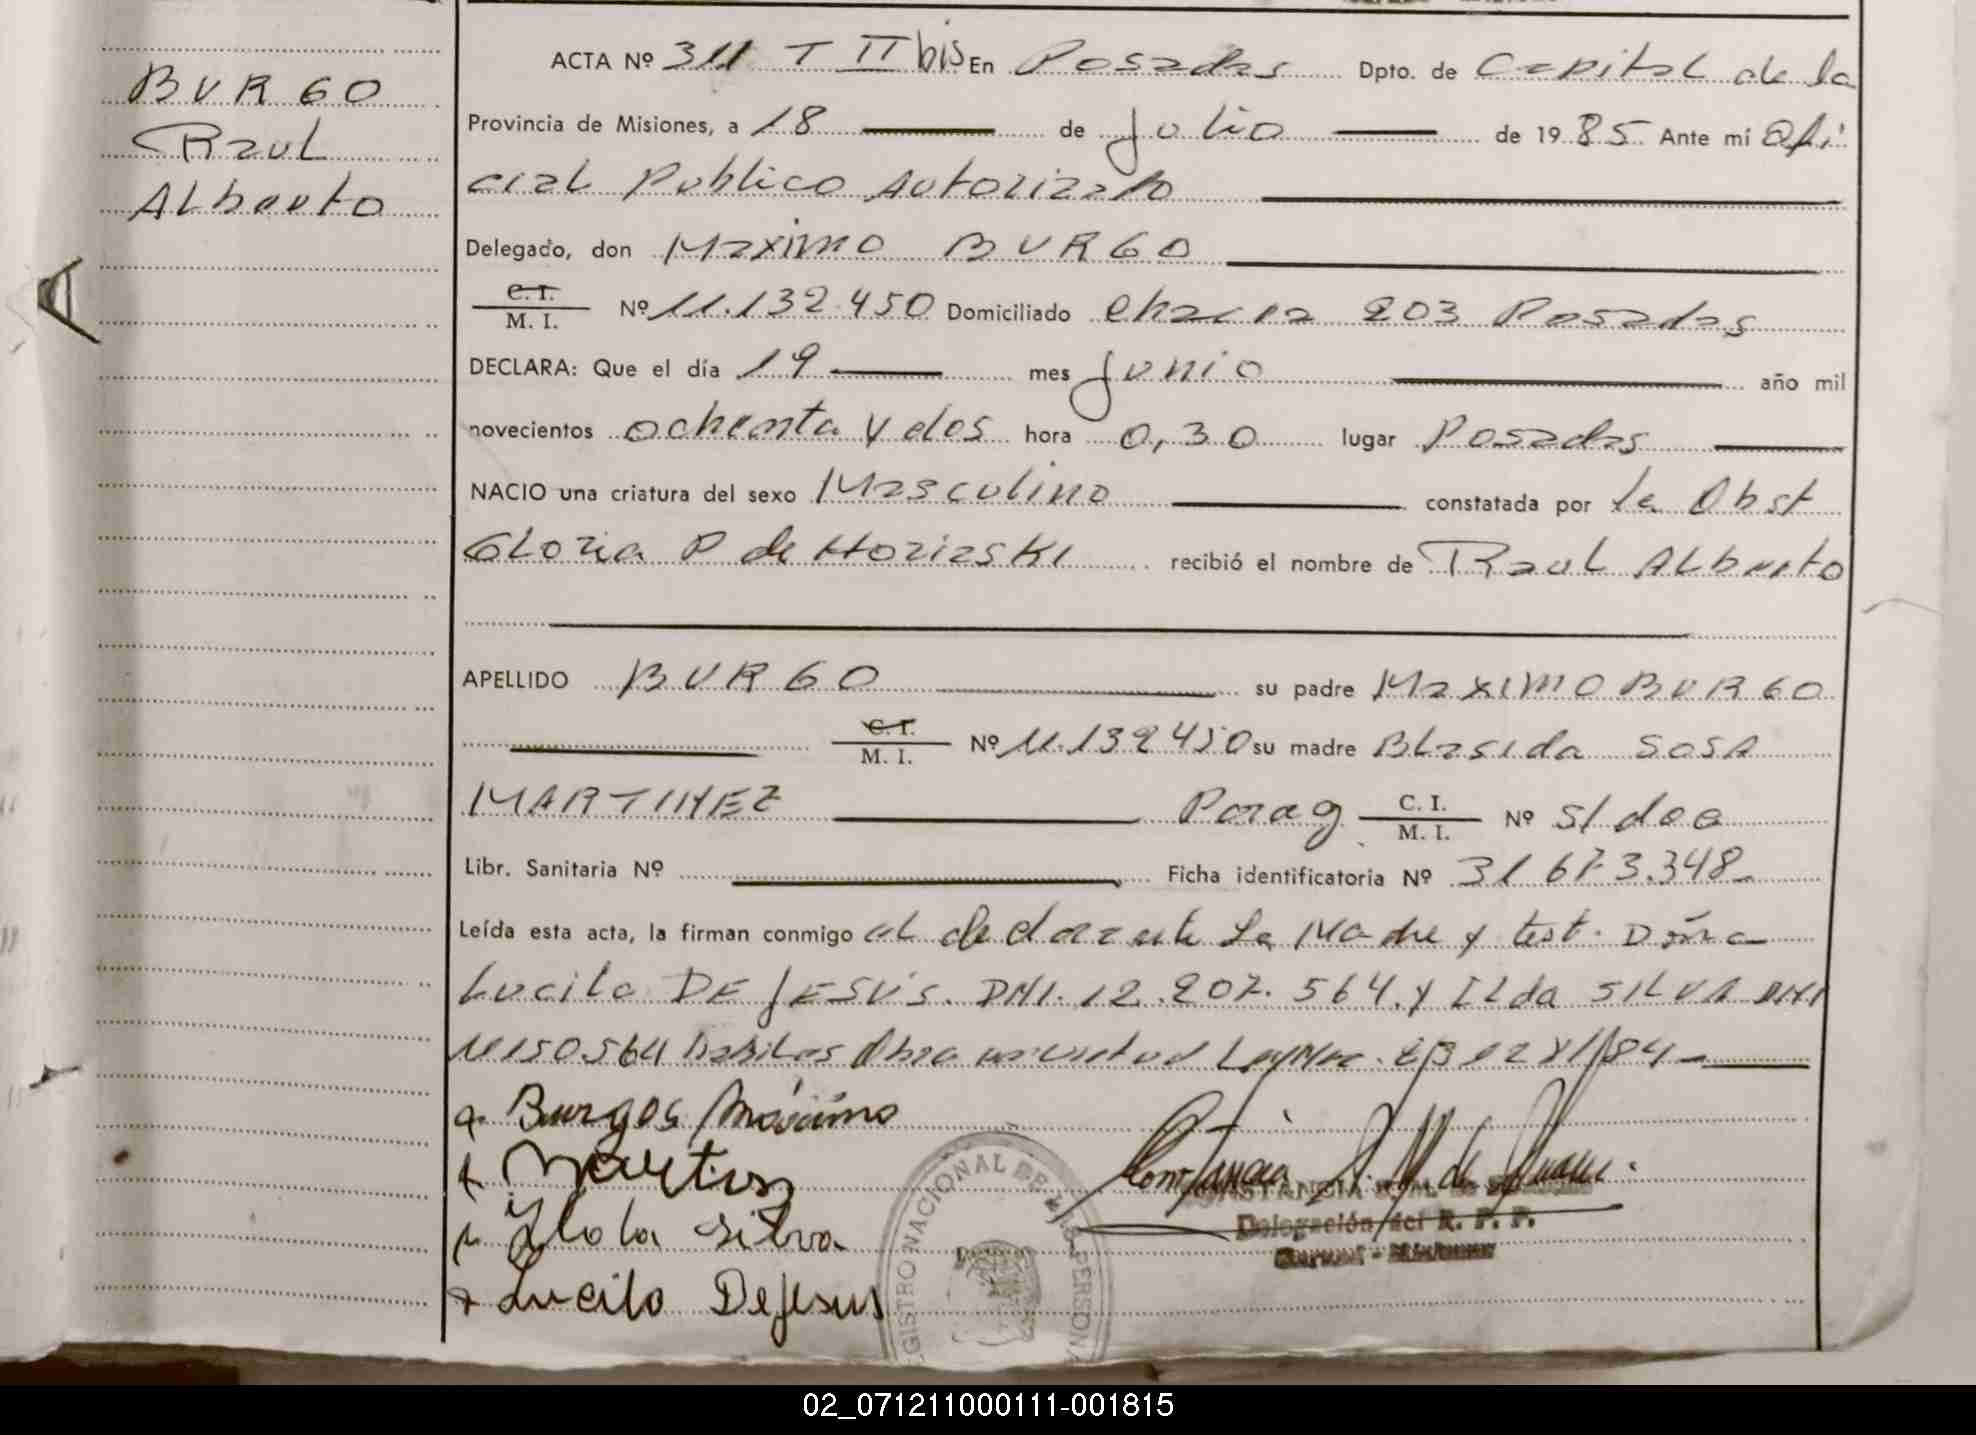 BURGO
Raul
Alberto
ACTA Nº 311 T II bis En Posadas Dpto. de Capital de la
Provincia de Misiones, a 18 de Julio de 1985 Ante mí Ofi
cial Publico Autorizado
Delegado, don Maximo BURGO
C. I. / M. I. Nº 11.132.450 Domiciliado Chacra 203 Posadas
DECLARA: Que el día 19 mes Junio año mil
novecientos ochenta y dos hora 0,30 lugar Posadas
NACIO una criatura del sexo Masculino constatada por la Obst
Gloria P de Horiaski recibió el nombre de Raul Alberto
APELLIDO BURGO su padre Maximo BURGO
C. I. / M. I. Nº 11.132450 su madre Blasida SOSA
MARTINEZ Parag C. I. / M. I. Nº s/doc
Libr. Sanitaria Nº Ficha identificatoria Nº 31 673.348
Leída esta acta, la firman conmigo el declarante La Madre y test. Doña
Lucila DE JESÚS. DNI. 12.207.564. y Ilda SILVA DNI
11150564 Ley 84
Burgos Máximo
Ilda Silva
Lucila DeJesus
REGISTRO NACIONAL DE LAS PERSONA
CONSTANCIA
Delegación del R. P. P.
02_071211000111-001815